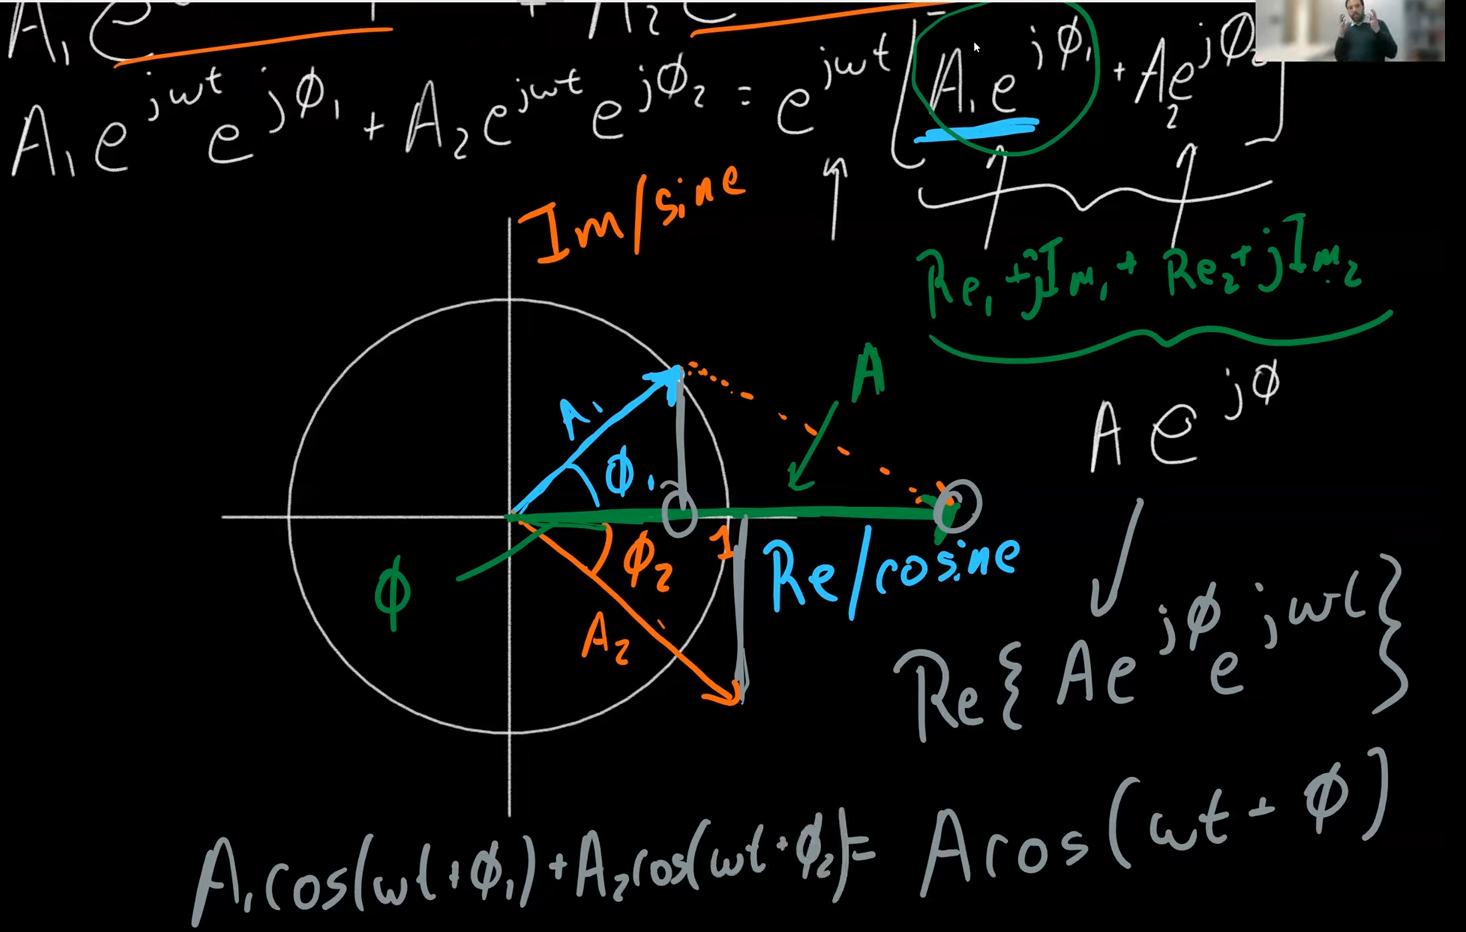 A₁e + A₂e
A₁e^{jωt} e^{jϕ₁} + A₂e^{jωt} e^{jϕ₂} = e^{jωt} [A₁e^{jϕ₁} + A₂e^{jϕ₂}]
Im/sine
Re₁+jIm₁ + Re₂+jIm₂
A
A₁
Ae^{jϕ}
ϕ₁
1
ϕ₂
Re/cosine
ϕ
A₂
Re{Ae^{jϕ}e^{jωt}}
A₁cos(ωt+ϕ₁)+A₂cos(ωt+ϕ₂)= Acos(ωt+ϕ)